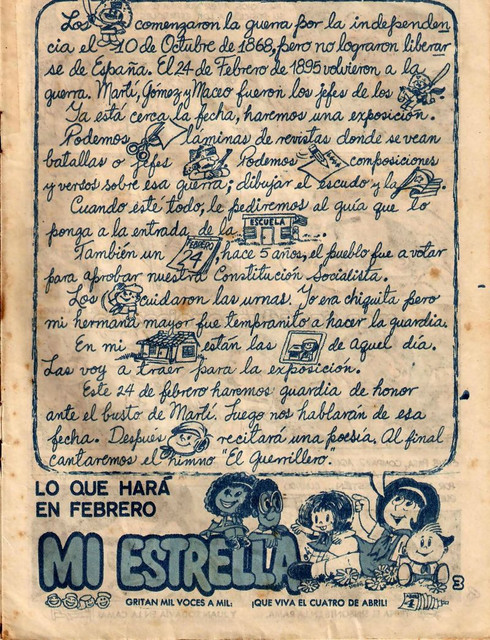 Los comenzaron la guerra por la independen
cia el 10 de Octubre de 1868, pero no lograron liberar
se de España. El 24 de Febrero de 1895 volvieron a la
guerra. Martí, Gómez y Maceo fueron los jefes de los
Ya está cerca la fecha, haremos una exposición.
Podemos laminas de revistas donde se vean
batallas o jefes Podemos composiciones
y versos sobre esa guerra; dibujar el escudo y la
Cuando esté todo, le pediremos al guía que lo
ponga a la entrada de la ESCUELA
También un FEBRERO 24, hace 5 años, el pueblo fue a votar
para aprobar nuestra Constitución Socialista.
Los cuidaron las urnas. Yo era chiquita pero
mi hermana mayor fue tempranito a hacer la guardia.
En mi están las de aquel día.
Las voy a traer para la exposición.
Este 24 de febrero haremos guardia de honor
ante el busto de Martí. Luego nos hablarán de esa
fecha. Después recitará una poesía. Al final
cantaremos el himno "El Guerrillero."
LO QUE HARÁ
EN FEBRERO
MI ESTRELLA
3
GRITAN MIL VOCES A MIL: ¡QUE VIVA EL CUATRO DE ABRIL!
4